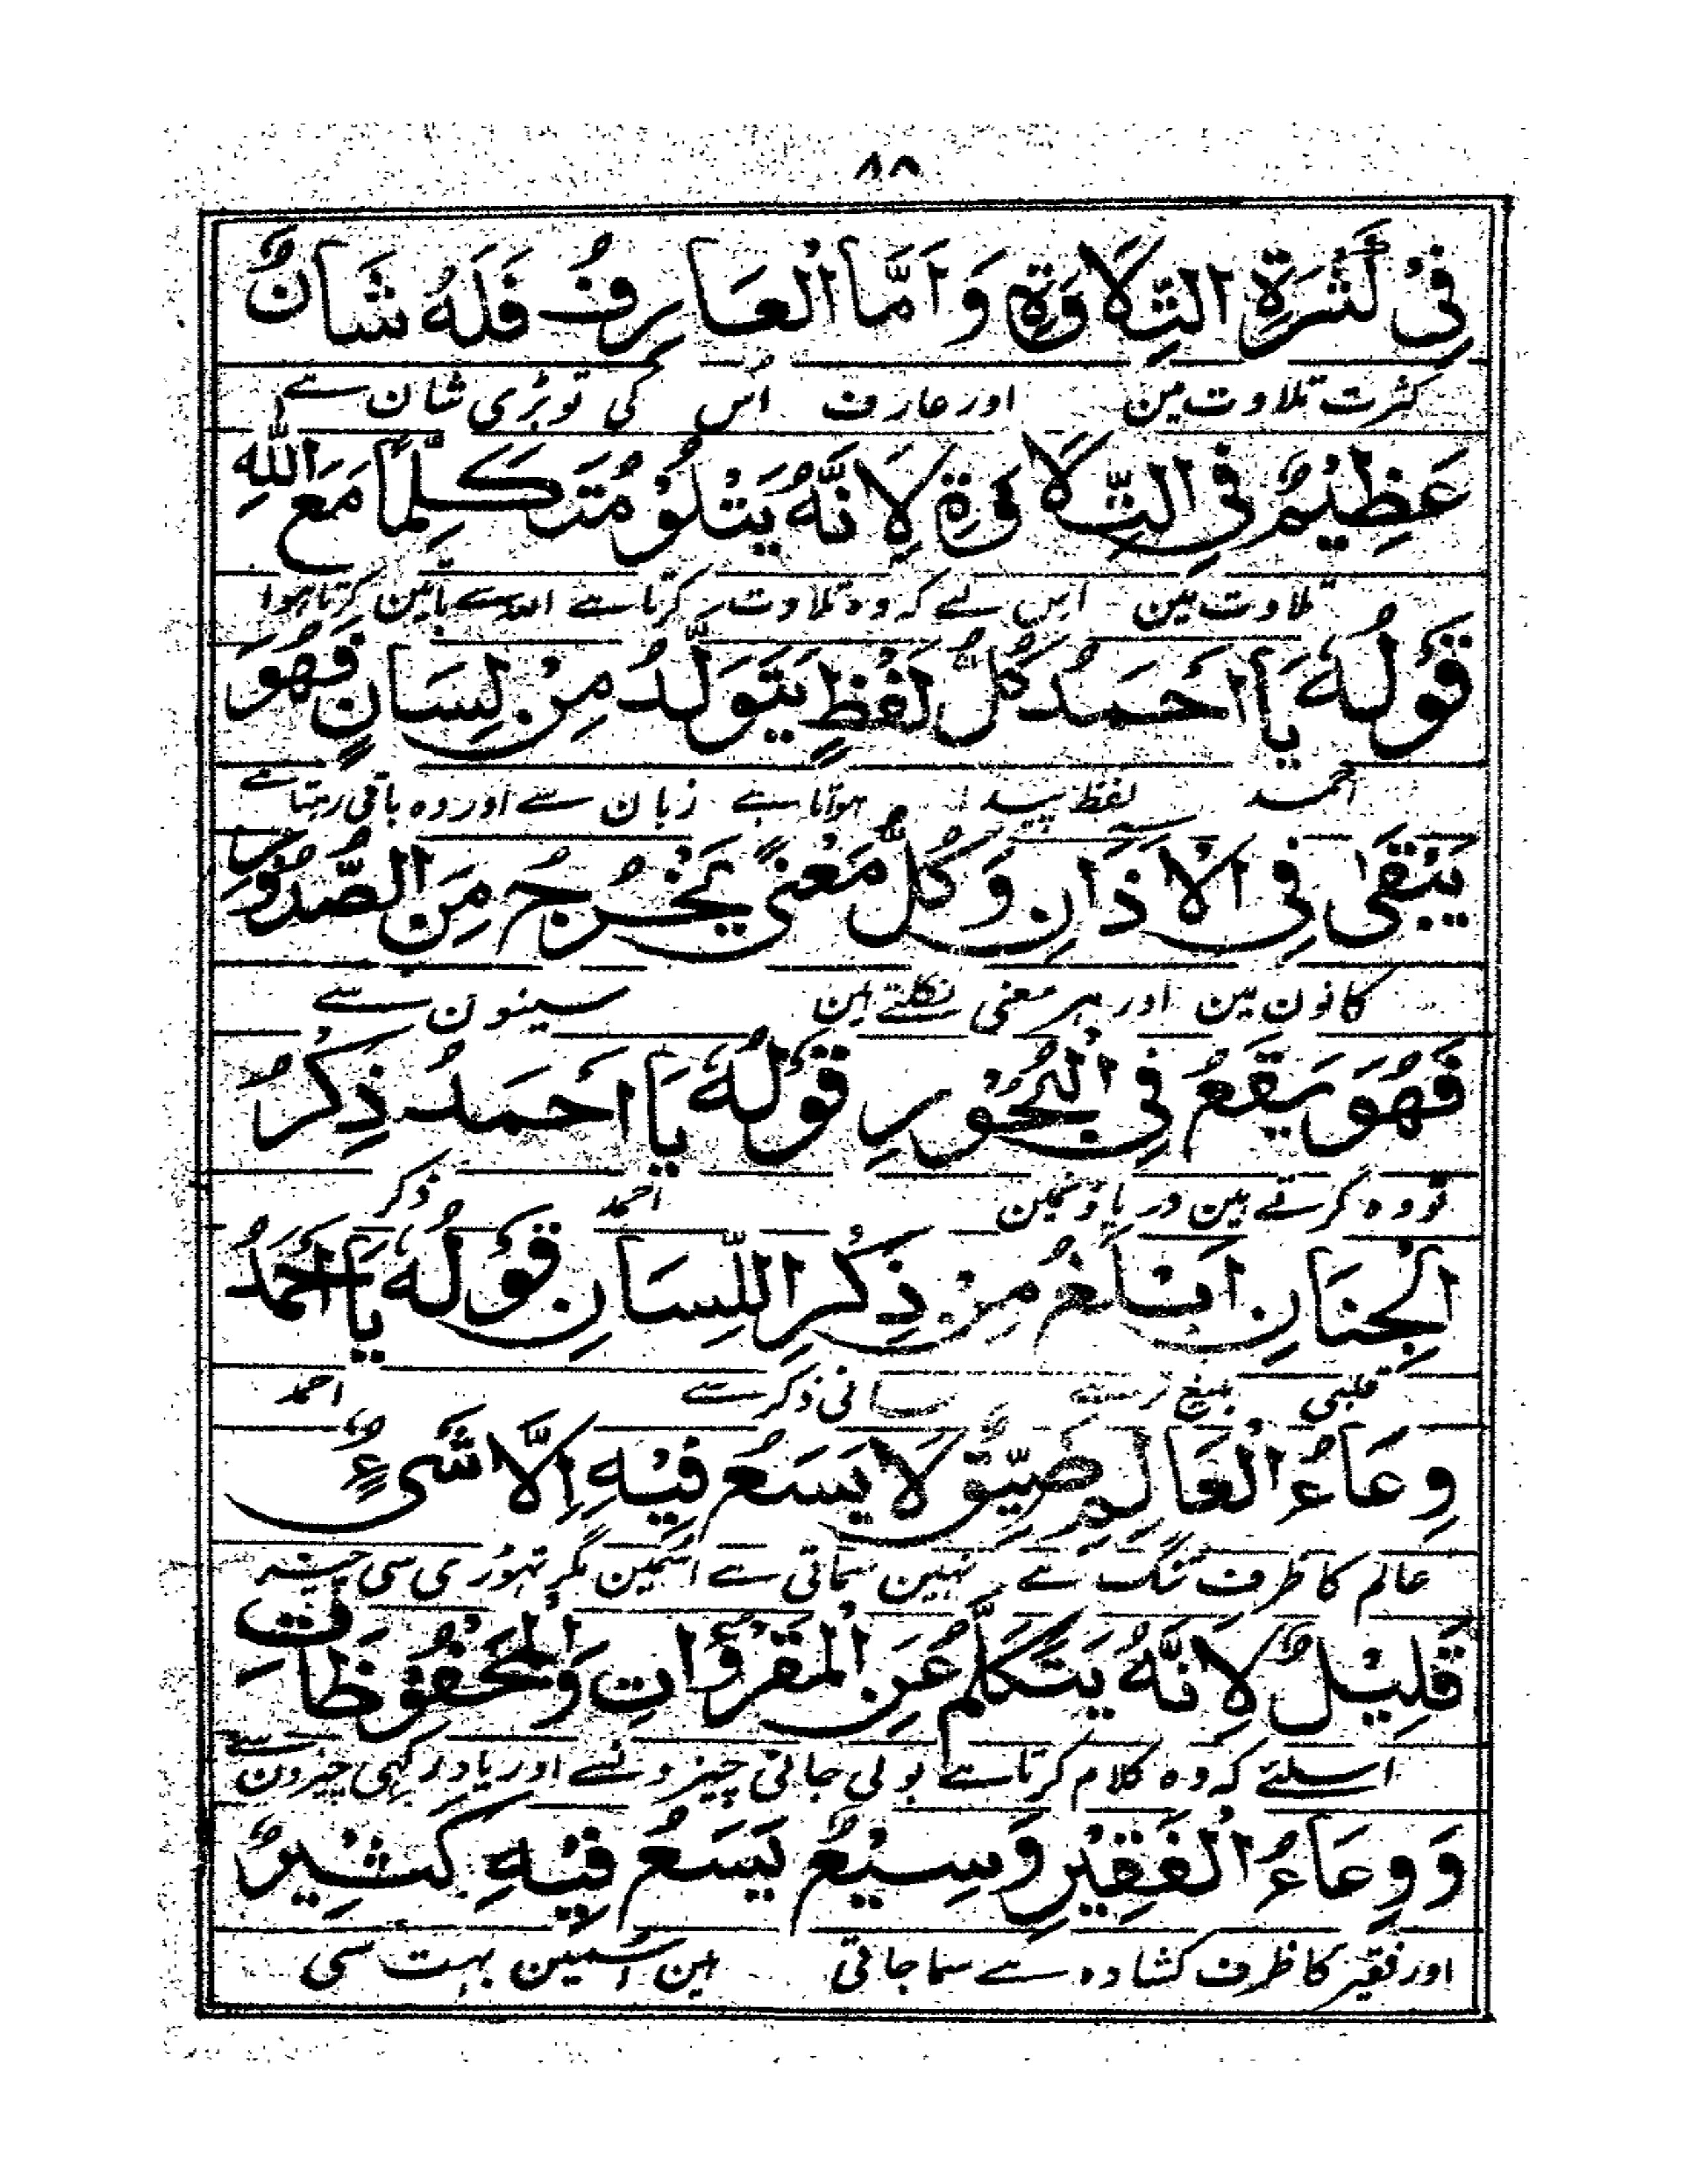 ۸۸
فِیْ كَثْرَةِ التِّلَاوَةِ وَاَمَّا الْعَارِفُ فَلَهٗ شَانٌ
کثرت تلاوت مین اور عارف اس کی تو بڑی شان ہے
عَظِيْمٌ فِي التِّلَاوَةِ لِاَنَّهٗ يَتْلُوْ مُتَكَلِّمًا مَعَ اللهِ
تلاوت مین اس لے کہ وہ تلاوت کرتا ہے اللہ سے باتین کرتا ہوا
قَوْلُهٗ يَا اَحْمَدُ كُلُّ لَفْظٍ يَتَوَلَّدُ مِنْ لِسَانٍ فَهُوَ
احمد لفظ پیدا ہوتا ہے زبان سے اور وہ باقی رہتا ہے
يَبْقٰى فِي الْاٰذَانِ وَكُلُّ مَعْنًى يَخْرُجُ مِنَ الصُّدُوْرِ
کانون مین اور ہر معنی نکلتے ہین سینون سے
فَهُوَ يَقَعُ فِي الْبُحُوْرِ قَوْلُهٗ يَا اَحْمَدُ ذِكْرُ
تو وہ گرتے ہین دریاؤنمین احمد ذکر
الْجِنَانِ اَبْلَغُ مِنْ ذِكْرِ اللِّسَانِ قَوْلُهٗ يَا اَحْمَدُ
قلبی بلیغ تر ہے لسانی ذکر سے احمد
وِعَاءُ الْعَالِمِ ضَيِّقٌ لَا يَسَعُ فِيْهِ اِلَّا شَیْءٌ
عالم کا ظرف تنگ ہے نہین سماتی ہے اسمین مگر تہوڑی سی چیز
قَلِيْلٌ لِاَنَّهٗ يَتَكَلَّمُ عَنِ الْمَقْرُوْاٰتِ وَالْمَحْفُوْظَاتِ
اسلئے کہ وہ کلام کرتا ہے بولی جاتی چیزونسے اور یاد رکہی چیزون سے
وَوِعَاءُ الْفَقِيْرِ وَسِيْعٌ يَسَعُ فِيْهِ كَثِيْرٌ
اور فقیر کا ظرف کشادہ ہے سما جاتی ہین اسمین بہت سی